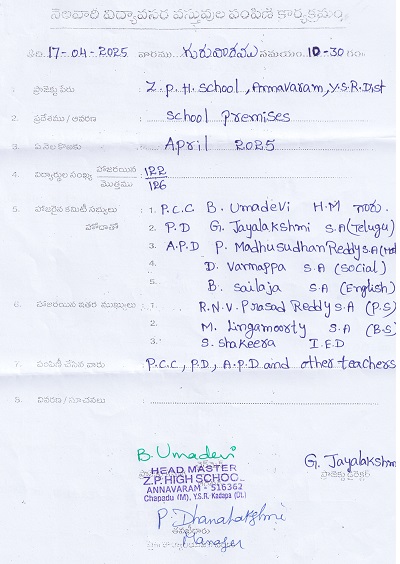 నెలవారీ విద్యావసర వస్తువుల పంపిణి కార్యక్రమం
తేది 17-04-2025 వారము గురువారము సమయం 10-30 గం.
1. ప్రాజెక్టు పేరు : Z.P.H. School, Annavaram, Y.S.R. Dist
2. ప్రదేశము / ఆవరణ : School Premises
3. ఏ నెల కొరకు : April 2025
4. విద్యార్థుల సంఖ్య హాజరయిన 122
మొత్తము 126
5. హాజరైన కమిటీ సభ్యులు : 1. P.C.C B. Umadevi H.M గారు.
హోదాతో 2. P.D G. Jayalakshmi S.A (Telugu)
3. A.P.D P. Madhusudhan Reddy S.A
4. D. Varmappa S.A (Social)
5. B. Sailaja S.A (English)
6. హాజరయిన ఇతర ముఖ్యులు : 1. R.N.V. Prasad Reddy S.A (P.S)
2. M. Lingamoorty S.A (B.S)
3. S. Shakeera I.E.D
7. పంపిణీ చేసిన వారు : P.C.C, P.D, A.P.D and other teachers
8. వివరణ / సూచనలు :
B. Umadevi
G. Jayalakshmi
HEAD MASTER
ప్రాజెక్టు డైరెక్టర్
Z.P. HIGH SCHOOL
ANNAVARAM - 516362
Chapadu (M), Y.S.R. Kadapa (Dt.)
P. Dhanalakshmi
Manager